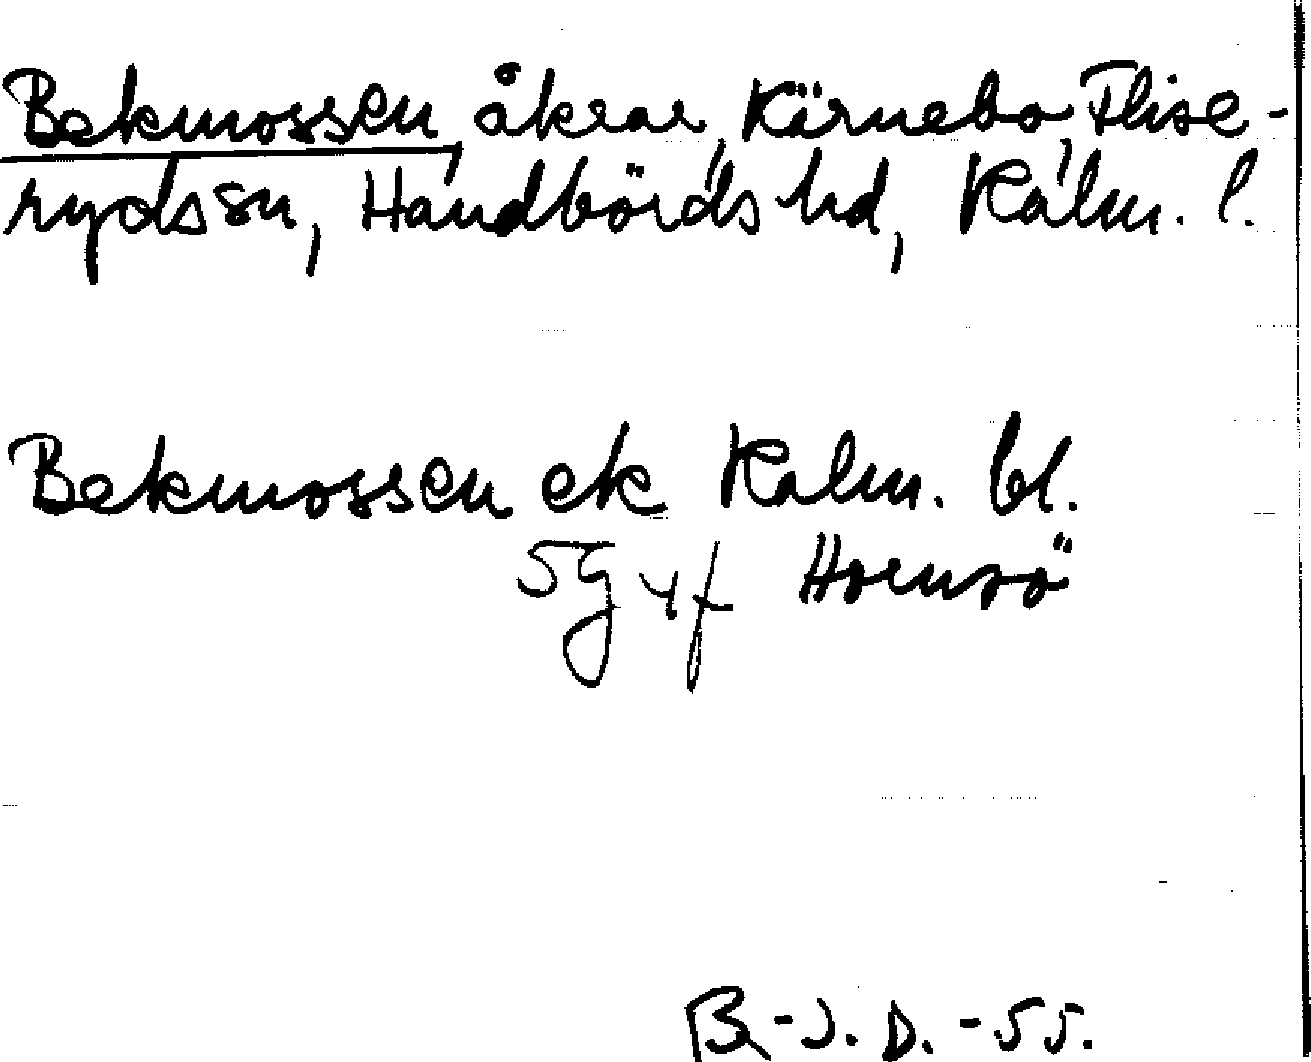 Bekmossen, åkrar, Kärnebo, Flise-
rydssn, Handbörds hd, Kalm. l.
Bekmossen ek Kalm. bl.
5g 4f Hornsö
B.-J. D. -55.